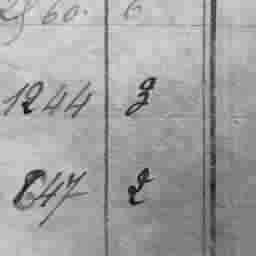 60. 6
1244 3
647 2